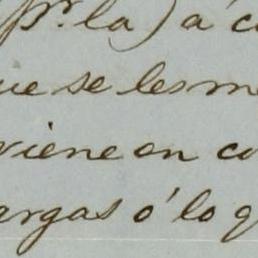 pr. la) á c
ue se les m
viene en co
argas ó lo q